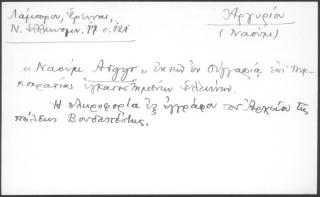 Λάμπρου, Ἔρευναι,
Ν. Ἑλληνομν. 17 σ. 121
Ἀργυρίου
(Ναούμ)
«Ναούμ Αργυρ» ἐκ τῶν ἐν Οὑγγαρίᾳ ἐπὶ Τουρ-
κοκρατίας ἐγκατεστημένων Ἑλλήνων.
Ἡ πληροφορία ἐξ ἐγγράφου τοῦ Ἀρχείου τῆς
πόλεως Βουδαπέστης.